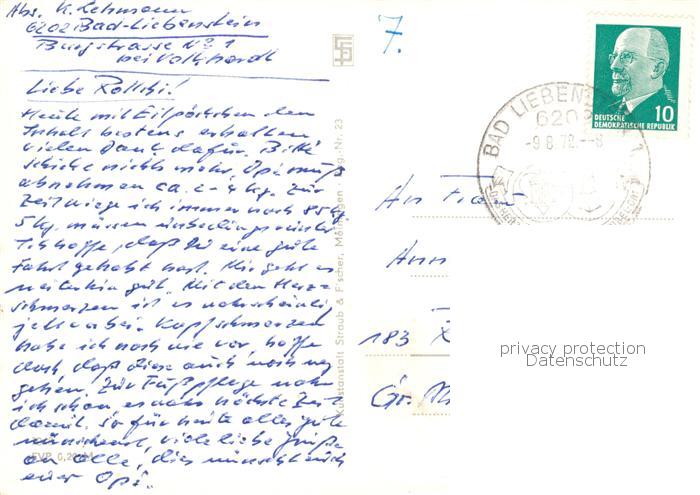 Abs. K. Lehmann
6202 Bad-Liebenstein
Burgstrasse No 1
bei Volkhardt
7.
Liebe Rollchi!
Heute mit Eilpäckchen den
Inhalt bestens erhalten
vielen Dank dafür. Bitte
schicke nichts mehr. Opi muß
abnehmen ca. 2-4 kg. Zur
Zeit wiege ich immer noch 85 kg
5 kg. müssen unbedingt runter
Ich hoffe, daß Du eine gute
Fahrt gehabt hast. Mir geht es
weiterhin gut. Mit den Herz-
schmerzen ist es wahrscheinlich
vorbei. Kopfschmerzen
habe ich nach wie vor, hoffe
doch, daß diese auch noch weg
gehen. Zur Fußpflege nahm
ich schon, es nächste Zeit
damit. So für heute alles gute
wünschend, viele liebe Grüße
an alle, dies wünscht euch
euer Opi.
EVP 0,20 M
Kunstanstalt Straub & Fischer, Meiningen · Ag.-Nr. 23
DEUTSCHE
DEMOKRATISCHE REPUBLIK
10
BAD LIEBENSTEIN 1
6202
-9.8.72.--8
An Frau
Ann
183 R
Gr. M
privacy protection
Datenschutz